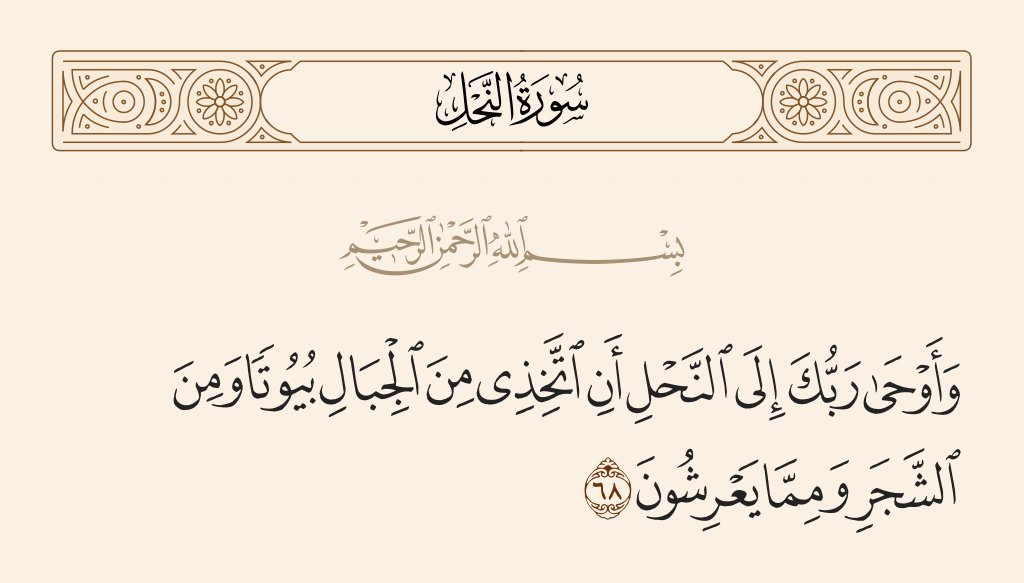 سُورَةُ النَّحْلِ
بِسْمِ ٱللَّهِ ٱلرَّحْمَٰنِ ٱلرَّحِيمِ
وَأَوْحَىٰ رَبُّكَ إِلَى ٱلنَّحْلِ أَنِ ٱتَّخِذِى مِنَ ٱلْجِبَالِ بُيُوتًا وَمِنَ
ٱلشَّجَرِ وَمِمَّا يَعْرِشُونَ ٦٨